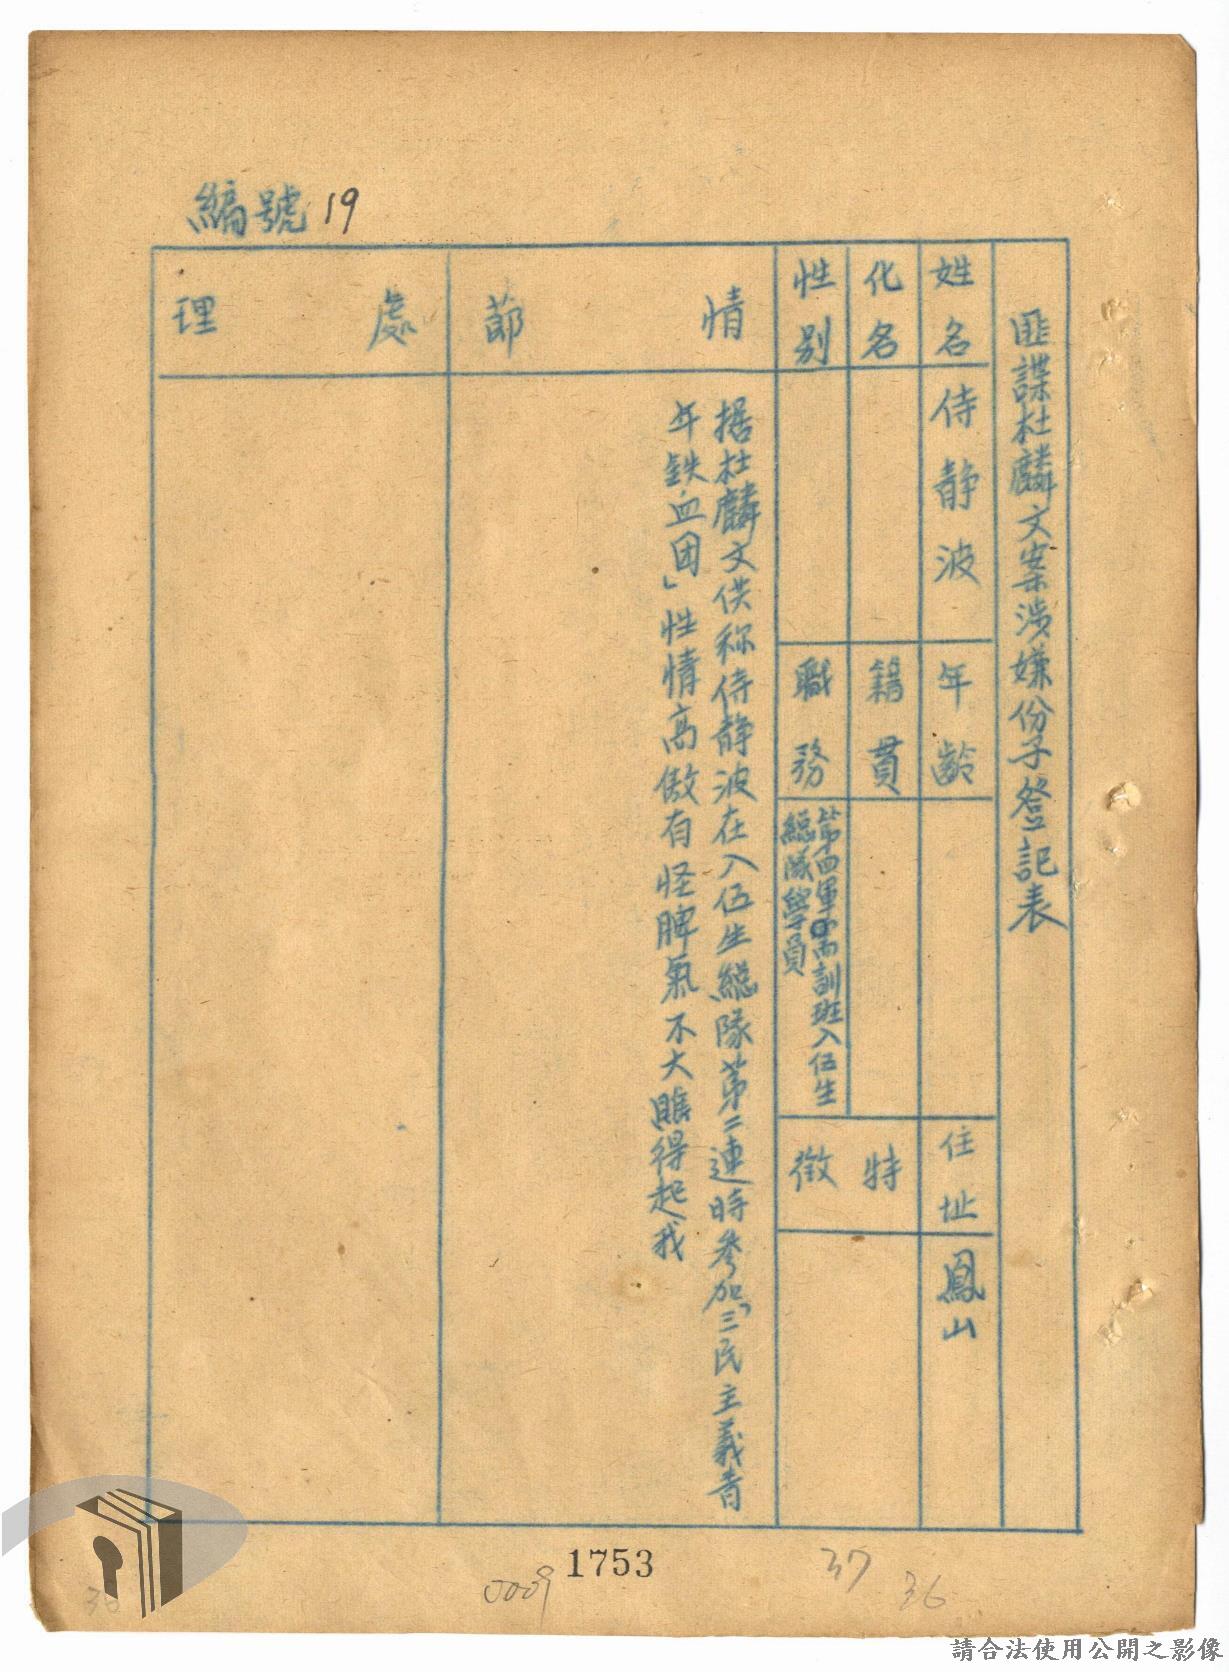 編號19
匪諜杜麟文案涉嫌份子登記表
姓名 侍静波 年齡 住址 鳳山
化名 籍貫 特徵
性别 職務
第四軍官訓班入伍生
總隊學員
情節
据杜麟文供称侍静波在入伍生總隊第二連時參加「三民主義青
年鉄血团」性情高傲有怪脾氣不大瞧得起我
處理
1753
0009
37
36
36
請合法使用公開之影像